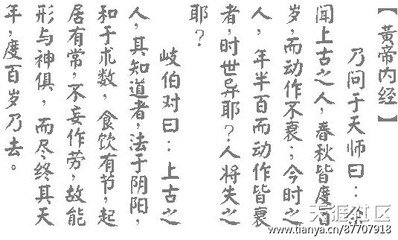 【黃帝内经】
乃问于天师曰：余
闻上古之人，春秋皆度百
岁，而动作不衰；今时之
人，年半百而动作皆衰
者，时世异耶？人将失之
耶？
岐伯对曰：上古之
人，其知道者，法于阴阳，
和于术数，食饮有节，起
居有常，不妄作劳，故能
形与神俱，而尽终其天
年，度百岁乃去。
天涯社区
www.tianya.cn/87707918